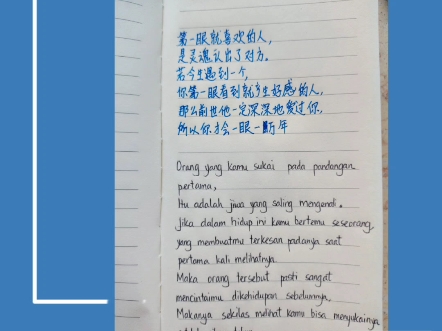 第一眼就喜欢的人，
是灵魂认出了对方。
若今生遇到一个，
你第一眼看到就产生好感的人，
那么前世他一定深深地爱过你，
所以你才会一眼一万年
Orang yang kamu sukai pada pandangan
pertama,
Itu adalah jiwa yang saling mengenali.
Jika dalam hidup ini kamu bertemu seseorang,
yang membuatmu terkesan padanya saat
pertama kali melihatnya.
Maka orang tersebut pasti sangat
mencintaimu dikehidupan sebelumnya,
Makanya sekilas melihat kamu bisa menyukainya